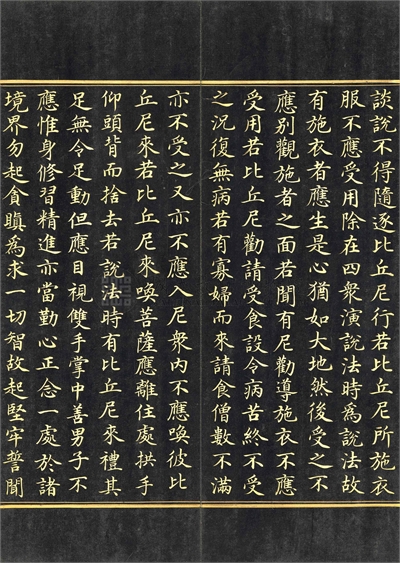 談說不得隨逐比丘尼行若比丘尼所施衣
服不應受用除在四衆演說法時為說法故
有施衣者應生是心猶如大地然後受之不
應別觀施者之面若聞有尼勸導施衣不應
受用若比丘尼勸請受食設令病苦終不受
之況復無病若有寡婦而來請食僧數不滿
亦不受之又亦不應入尼衆內不應喚彼比
丘尼來若比丘尼來喚菩薩應離住處拱手
仰頭背而捨去若說法時有比丘尼來禮其
足無令足動但應目視雙手掌中善男子不
應惟身修習精進亦當勤心正念一處於諸
境界勿起貪瞋為求一切智故起堅牢誓聞